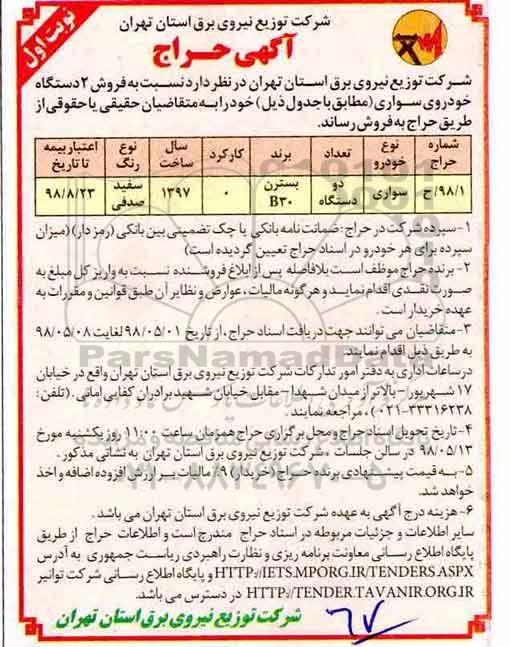 نوبت اول
شرکت توزیع نیروی برق استان تهران
آگهی حراج
شرکت توزیع نیروی برق استان تهران در نظر دارد نسبت به فروش ۲ دستگاه
خودروی سواری (مطابق با جدول ذیل) خود را به متقاضیان حقیقی یا حقوقی از
طریق حراج به فروش رساند.
شماره حراج نوع خودرو تعداد برند کارکرد سال ساخت نوع رنگ اعتبار بیمه تا تاریخ
۹۸/۱/ح سواری دو دستگاه بسترن B۳۰ ۰ ۱۳۹۷ سفید صدفی ۹۸/۸/۲۳
۱- سپرده شرکت در حراج: ضمانت نامه بانکی یا چک تضمینی بین بانکی (رمزدار) (میزان
سپرده برای هر خودرو در اسناد حراج تعیین گردیده است)
۲- برنده حراج موظف است بلافاصله پس از ابلاغ فروشنده نسبت به واریز کل مبلغ به
صورت نقدی اقدام نماید و هرگونه مالیات، عوارض و نظایر آن طبق قوانین و مقررات به
عهده خریدار است.
۳- متقاضیان می توانند جهت دریافت اسناد حراج، از تاریخ ۹۸/۰۵/۰۱ لغایت ۹۸/۰۵/۰۸
به طریق ذیل اقدام نمایند.
در ساعات اداری به دفتر امور تدارکات شرکت توزیع نیروی برق استان تهران واقع در خیابان
۱۷ شهریور- بالاتر از میدان شهدا- مقابل خیابان شهید برادران کفایی امانی. (تلفن:
۳۳۳۱۶۲۳۸-۰۲۱)، مراجعه نمایند.
۴- تاریخ تحویل اسناد حراج و محل برگزاری حراج همزمان ساعت ۱۱:۰۰ روز یکشنبه مورخ
۹۸/۰۵/۱۳ در سالن جلسات، شرکت توزیع نیروی برق استان تهران به نشانی مذکور.
۵- به قیمت پیشنهادی برنده حراج (خریدار) ۹٪ مالیات بر ارزش افزوده اضافه و اخذ
خواهد شد.
۶- هزینه درج آگهی به عهده شرکت توزیع نیروی برق استان تهران می باشد.
سایر اطلاعات و جزئیات مربوطه در اسناد حراج مندرج است و اطلاعات حراج از طریق
پایگاه اطلاع رسانی معاونت برنامه ریزی و نظارت راهبردی ریاست جمهوری به آدرس
HTTP://IETS.MPORG.IR/TENDERS.ASPX و پایگاه اطلاع رسانی شرکت توانیر
HTTP://TENDER.TAVANIR.ORG.IR در دسترس می باشد.
شرکت توزیع نیروی برق استان تهران
ParsNamadData
۰۲۱-۸۸۳۴۹۶۷۰-۵